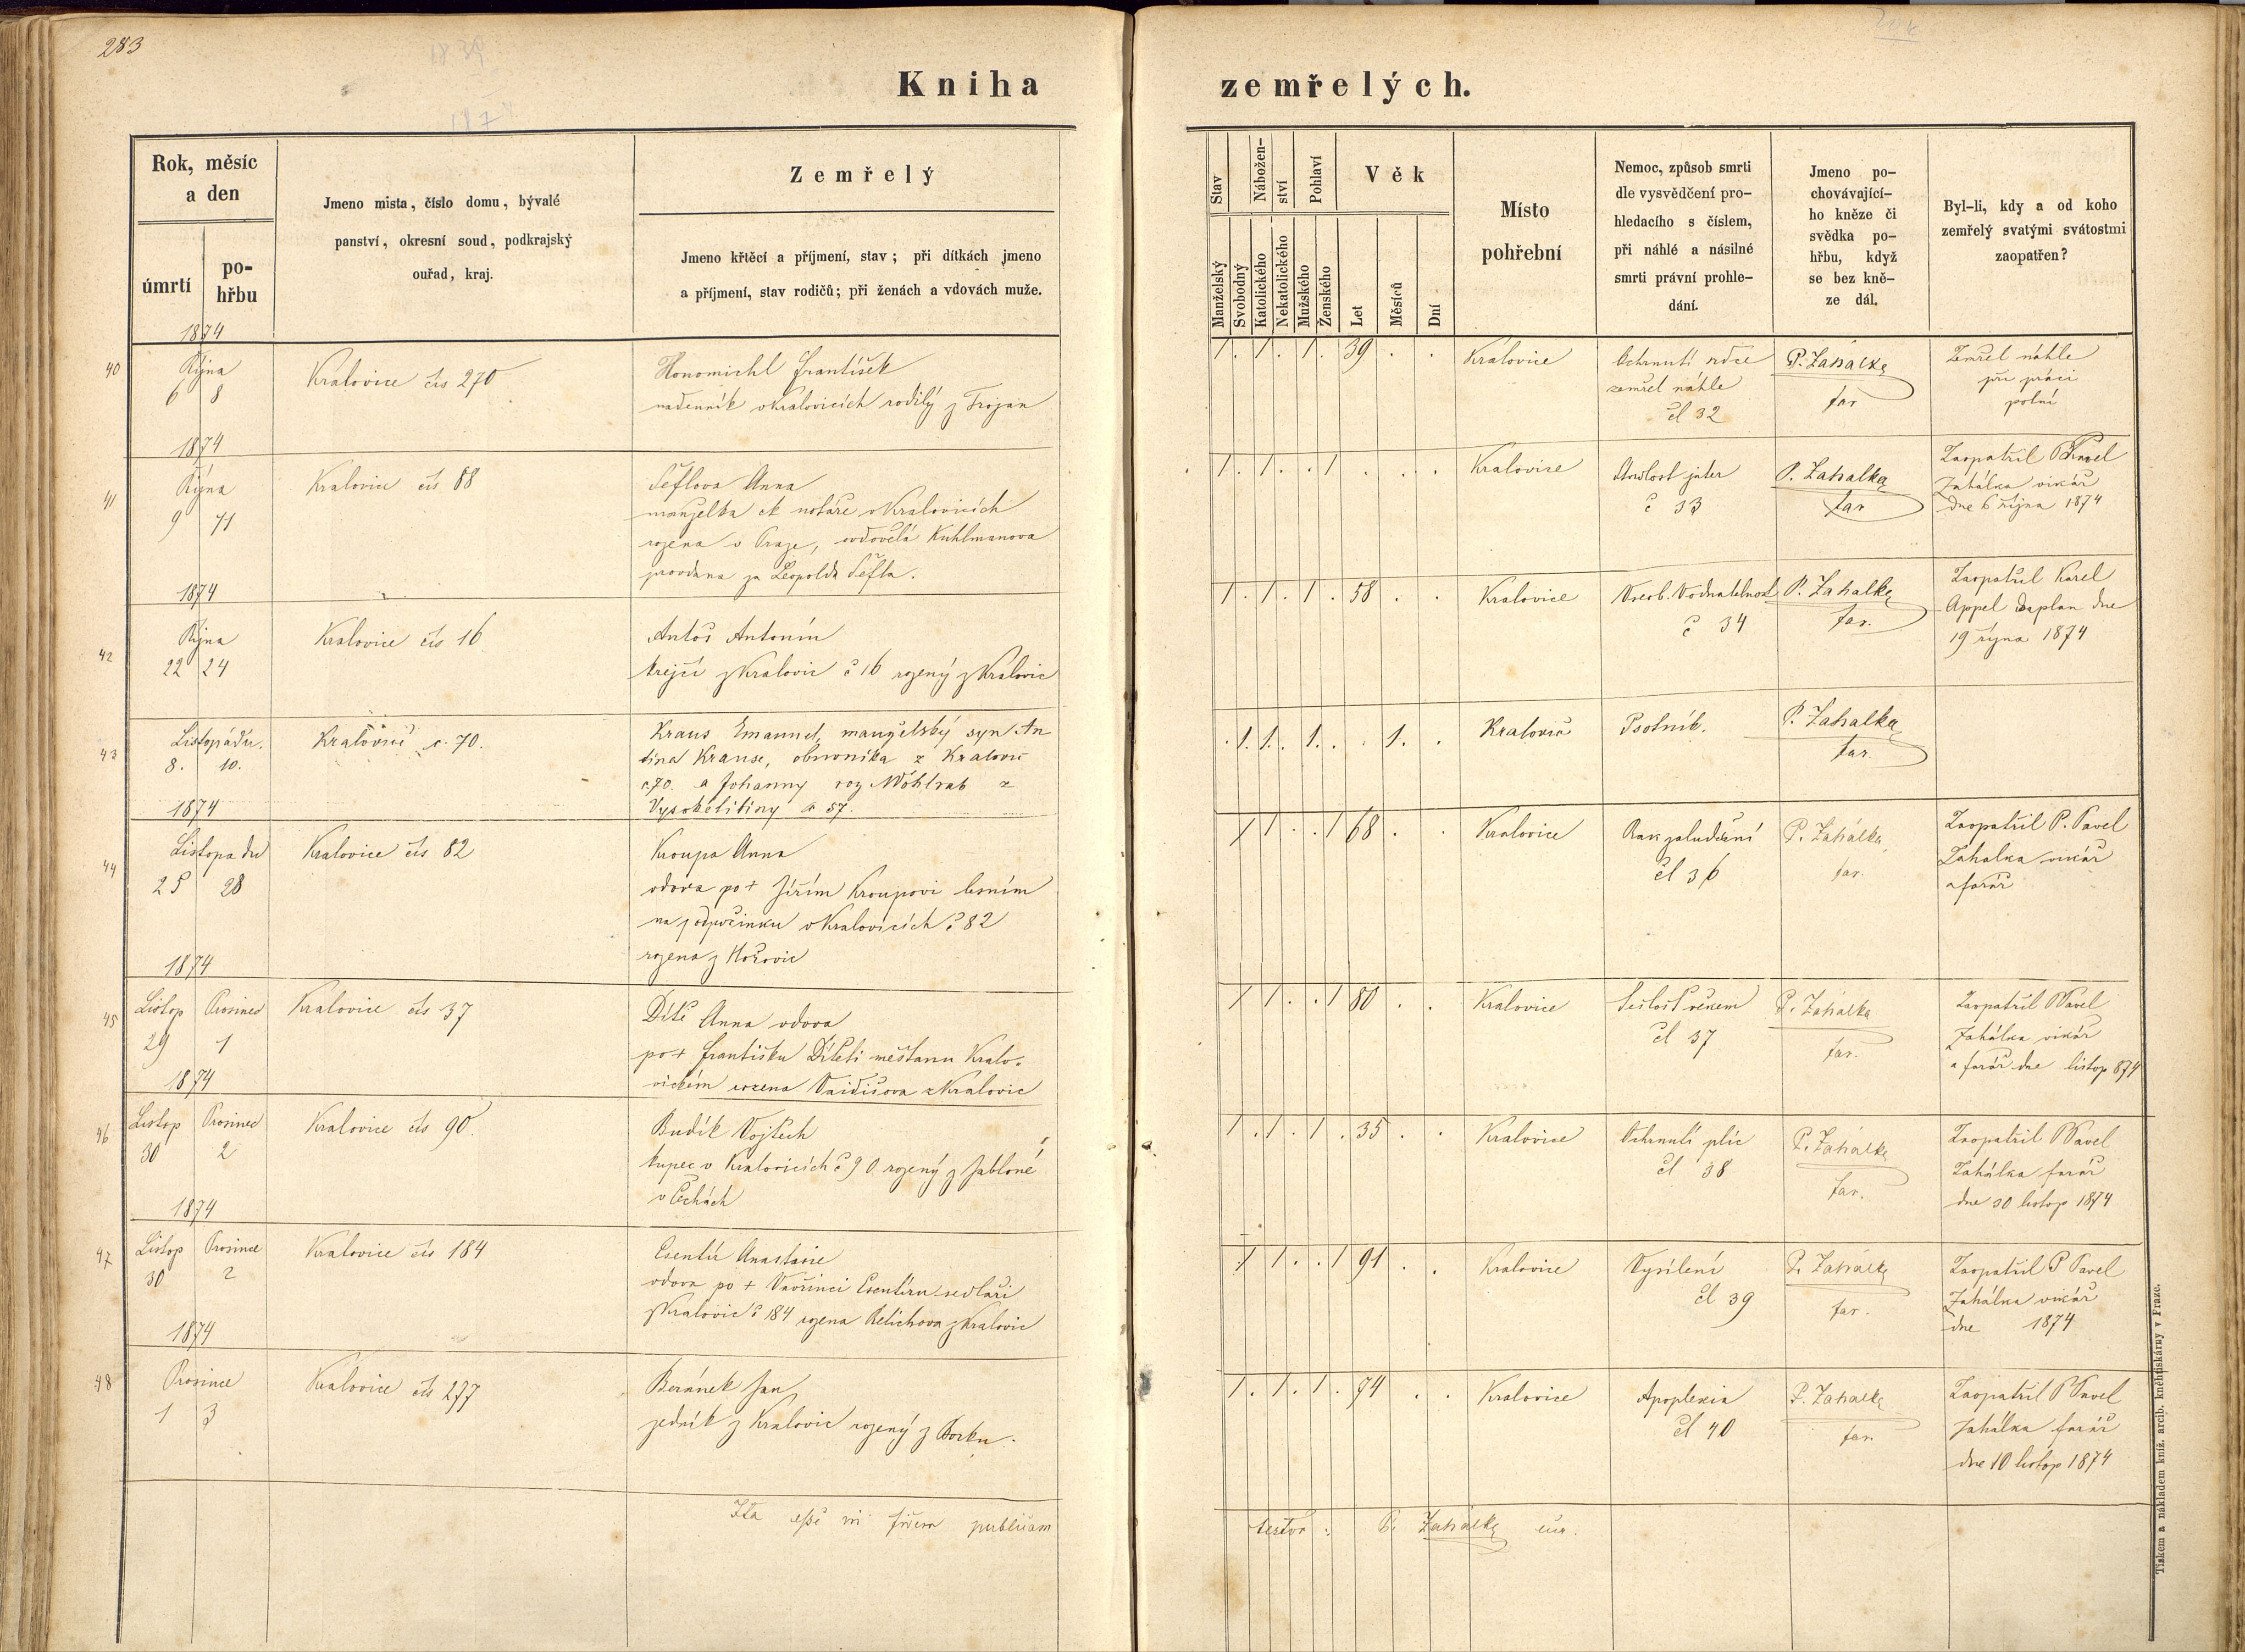 283
Kniha zemřelých.
Rok, měsíc
a den
úmrtí
po-
hřbu
Jmeno mista, číslo domu, bývalé
panství, okresní soud, podkrajský
ouřad, kraj.
Zemřelý
Jmeno křtěcí a příjmení, stav; při dítkách jmeno
a příjmení, stav rodičů; při ženách a vdovách muže.
Stav
Manželský
Svobodný
Nábožen-
ství
Katolického
Nekatolického
Pohlaví
Mužského
Ženského
Věk
Let
Měsíců
Dní
Místo
pohřební
Nemoc, způsob smrti
dle vysvědčení pro-
hledacího s číslem,
při náhlé a násilné
smrti právní prohle-
dání.
Jmeno po-
chovávající-
ho kněze či
svědka po-
hřbu, když
se bez kně-
ze dál.
Byl-li, kdy a od koho
zemřelý svatými svátostmi
zaopatřen?
1874
40
Října
6 8
Kralovice čís 270
Honomichl František
nadenník v Kralovicích rodilý z Trojan
1. 1. 1. 39 . .
Kralovice
Ochrnutí srdce
zemřel náhle
čl 32
P. Zahálka
far
Zemřel náhle
při práci
polní
1874
41
Října
9 11
Kralovice čís 88
Šeflova Anna
manželka ck notáře v Kralovicích
rozena v Praze, ovdovělá Kuhlmanova
provdana za Leopolda Šefla.
1. 1. . 1 . . .
Kralovice
Stvrdlost jater
č 33
P. Zahalka
far
Zaopatřil P Pavel
Zahálka vikář
dne 6 října 1874
1874
42
Října
22 24
Kralovice čís 16
Antoš Antonín
krejčí z Kralovic č 16 rozený z Kralovic
1. 1. 1. 58 . .
Kralovice
Všeob. Vodnatelnost
č 34
P. Zahalka
far.
Zaopatřil Karel
Appel kaplan dne
19 října 1874
43
Listopádu.
8. 10.
Kralovic č. 70.
Kraus Emanuel, manželský syn An
tina Krause, obuvníka z Kralovic
č. 70. a Johanny roz Wohlrab z
Vysokélibiny č 57.
. 1. 1. 1. . . 1. .
Kralovic
Psotník.
P. Zahalka
far.
1874
44
Listopadu
25 28
Kralovice čís 82
Kroupa Anna
vdova po + Jiřím Kroupovi lesním
na odpočinku v Kralovicích č 82
rozena z Hořovic
1 1 . . 1 68 . .
Kralovice
Rak zaludeční
čl 36
P. Zahálka
far.
Zaopatřil P. Pavel
Zahalka vikář
a farář
1874
45
Listop Prosinec
29 1
Kralovice čís 37
Dítě Anna vdova
po + Františku Dítěti měšťanu Kralo-
vickém rozena Vaidišova z Kralovic
1 1 . . 1 80 . .
Kralovice
Sešlost věkem
čl 37
P. Zahalka
far.
Zaopatřil P Pavel
Zahálka vikář
a farář dne listop 874
1874
46
Listop Prosinec
30 2
Kralovice čís 90
Budík Vojtěch
kupec v Kralovicích č 90 rozený z Jabloné
v Čechách
1. 1. 1. 35 . .
Kralovice
Ochrnutí plic
čl 38
P. Zahálka
far.
Zaopatřil P Pavel
Zahálka farář
dne 30 listop 1874
1874
47
Listop Prosince
30 2
Kralovice čís 184
Esentír Anastasie
vdova po + Vavřinci Esentíru sedláři
z Kralovic č 184 rozena Relichova z Kralovic
1 1 . . 1 91 . .
Kralovice
Vysílení
čl 39
P. Zahálka
far.
Zaopatřil P Pavel
Zahálka vikář
dne 1874
1874
48
Prosince
1 3
Kralovice čís 277
Beránek Jan
zedník z Kralovic rozený z Borku.
1. 1. 1. 74 . .
Kralovice
Apoplexia
čl 40
P. Zahalka
far.
Zaopatřil P Pavel
Zahálka farář
dne 10 listop 1874
Ita esse in fidem publicam
testor: P. Zahálka cur.
Tiskem a nákladem kníž. arcib. kněhtiskárny v Praze.